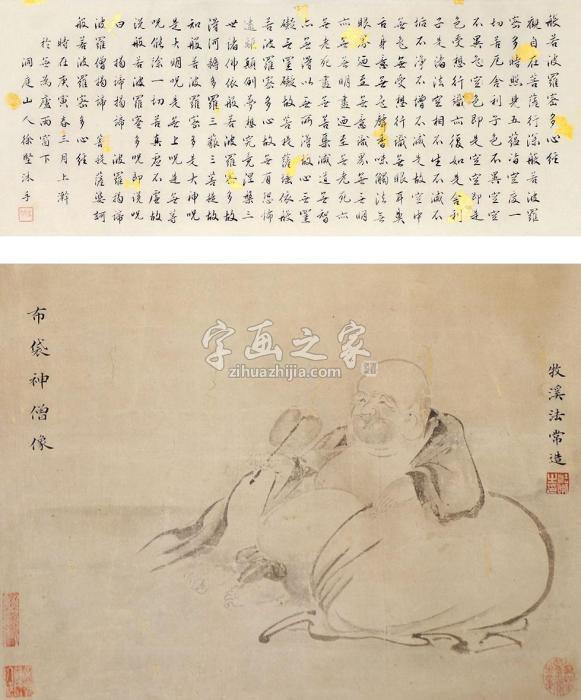 般若波羅蜜多心經
觀自在菩薩行深般若波羅
蜜多時照見五蘊皆空度一
切苦厄舍利子色不異空空
不異色色即是空空即是
色受想行識亦復如是舍利
子是諸法空相不生不滅不
垢不淨不增不減是故空中
無色無受想行識無眼耳鼻
舌身意無色聲香味觸法無
眼界乃至無意識界無無明
亦無無明盡乃至無老死亦
無老死盡無苦集滅道無智
亦無得以無所得故無罣
礙無罣礙故菩提薩埵依般
若波羅蜜多故心無有恐怖
遠離顛倒夢想究竟涅槃三
世諸佛依般若波羅蜜多故
得阿耨多羅三藐三菩提故
知般若波羅蜜多是大神咒
是大明咒是無上咒是無等
咒能除一切苦真實不虛故
說般若波羅蜜多咒即說咒
曰 揭諦揭諦 波羅揭諦
波羅僧揭諦 菩提薩婆訶
般若波羅蜜多心經
時在庚寅春三月上澣
於無為廬雨窗下
洞庭山人徐堅沐手
牧溪法常造
布袋神僧像
字画之家
zihuazhijia.com